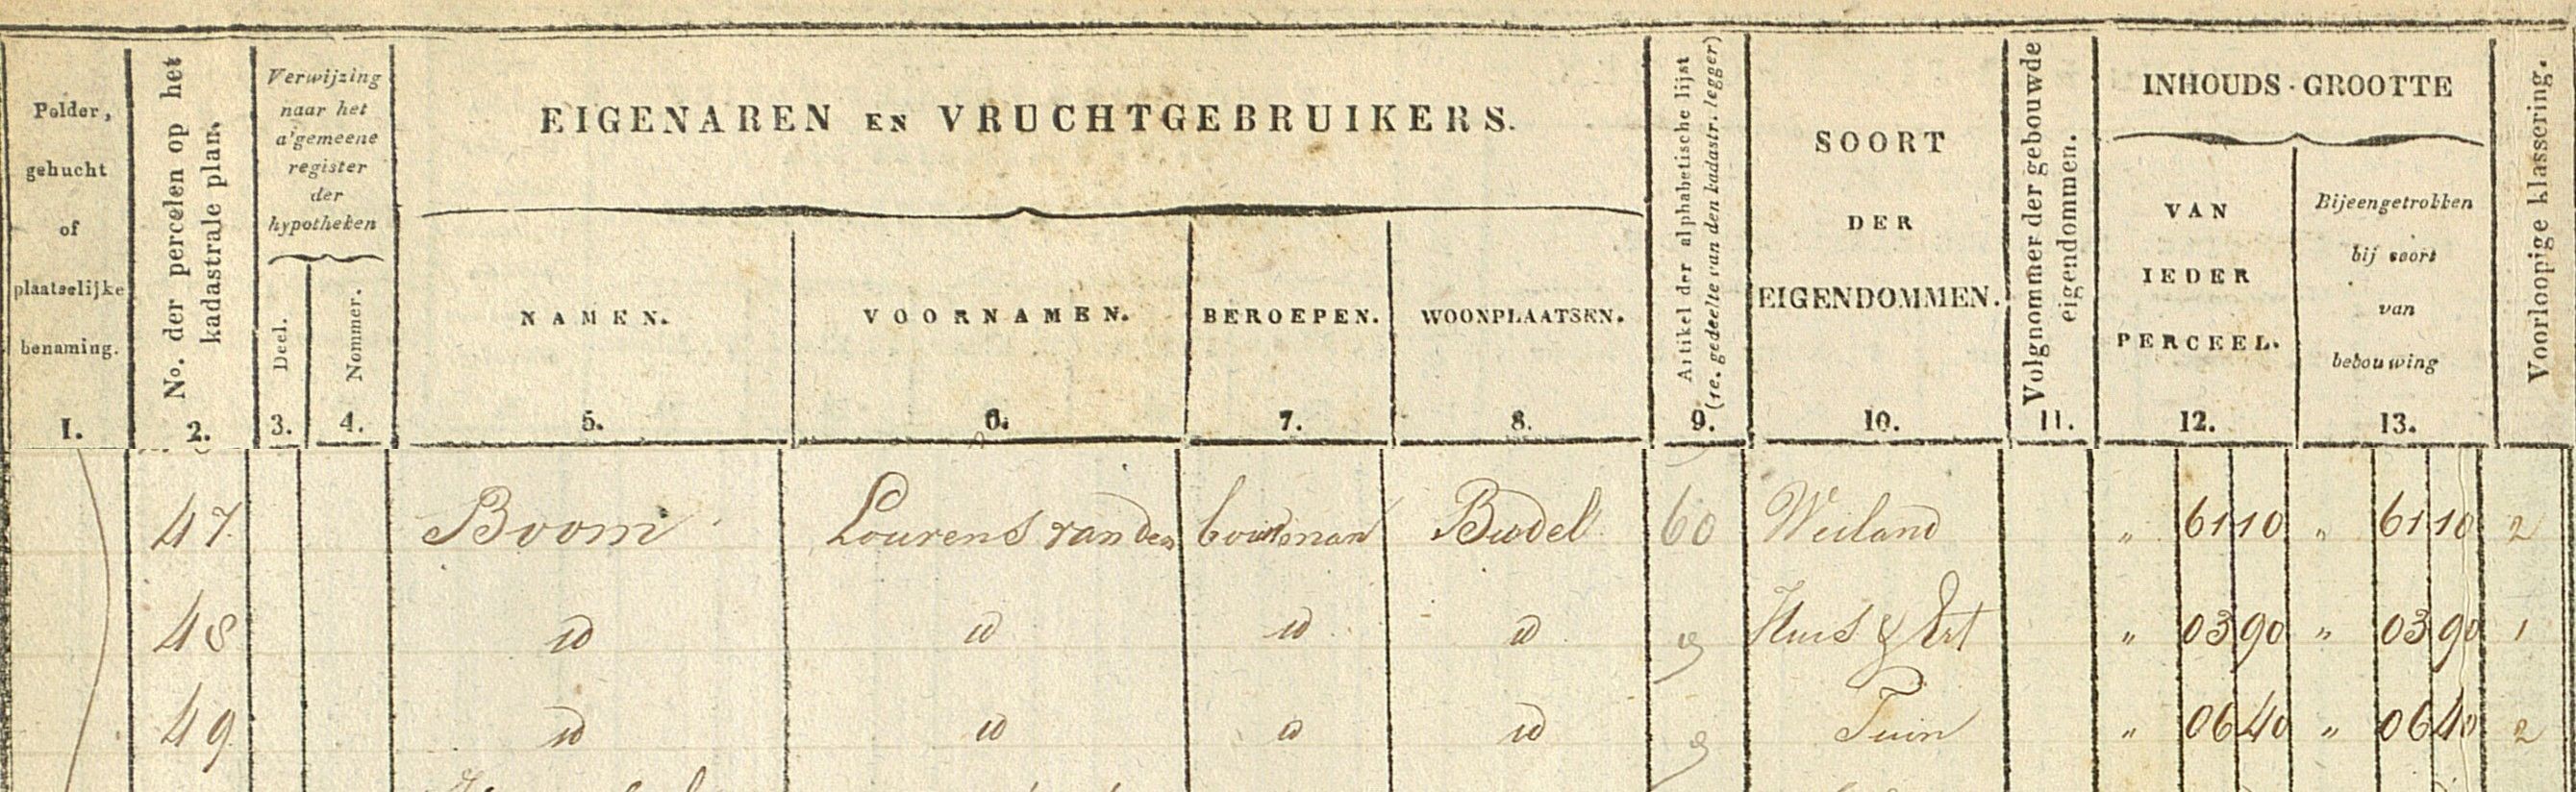 Polder, gehucht of plaatselijke benaming. 1.
No. der percelen op het kadastrale plan. 2.
Verwijzing naar het a'gemeene register der hypotheken
Deel. 3.
Nommer. 4.
EIGENAREN EN VRUCHTGEBRUIKERS.
NAMEN. 5.
VOORNAMEN. 6.
BEROEPEN. 7.
WOONPLAATSEN. 8.
Artikel der alphabetische lijst (1e. gedeelte van den kadastr. legger) 9.
SOORT DER EIGENDOMMEN. 10.
Volgnommer der gebouwde eigendommen. 11.
INHOUDS-GROOTTE
VAN IEDER PERCEEL. 12.
Bijeengetrokken bij soort van bebouwing 13.
Voorloopige klassering.
47 Boom Lourens van den Budel 60 Weiland " 61 10 " 61 10 2
48 id id id id Huis & Erf " 03 90 " 03 90 1
49 id id id id Tuin " 06 40 " 06 40 2